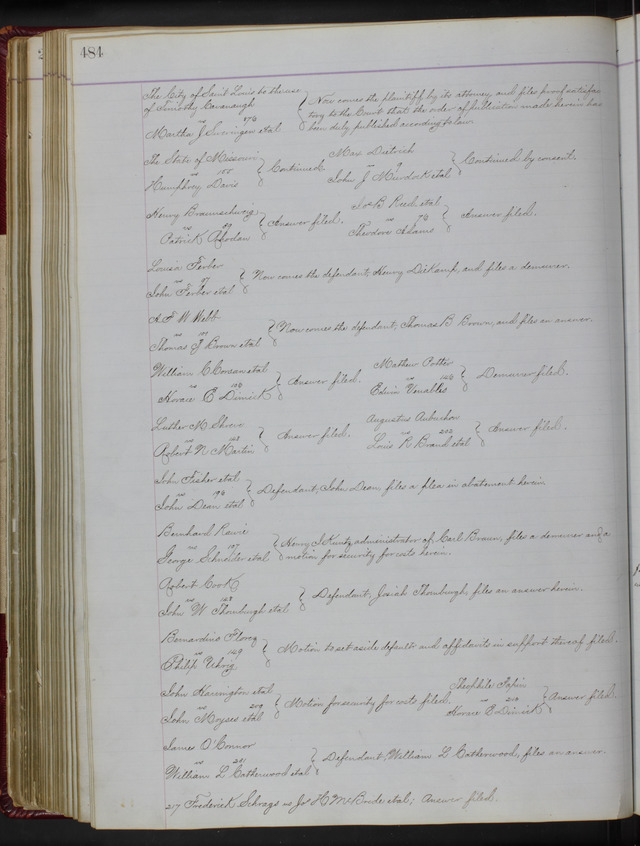 484
The City of Saint Louis to the use
of Timothy Cavanaugh
vs 173
Martha J. Sweringen etal
Now comes the plaintiff by its attorney, and files proof satisfac
tory to the Court that the order of publication made herein has
been duly published according to law.
The State of Missouri
vs 155
Humphrey Davis
Continued.
Max Dietrich
vs 9
John J Murdock etal
Continued by consent.
Henry Braunschweig
vs 49
Patrick Jordan
Answer filed.
J. B. Reed etal
vs 76
Theodore Adams
Answer filed.
Louisa Ferber
vs 87
John Ferber etal
Now comes the defendant, Henry Diekamp, and files a demurrer.
A F W Webb
vs 101
Thomas J Brown etal
Now comes the defendant, Thomas B Brown, and files an answer.
William C etal
vs 136
Horace E Dimick
Answer filed.
Mathew Potter
vs 146
Edwin Venables
Demurrer filed.
Luther M Shreve
vs 163
Robert N Martin
Answer filed.
Augustus Aubuchon
vs 202
Louis R Braud etal
Answer filed.
John Fisher etal
vs 196
John Dean etal
Defendant, John Dean, files a plea in abatement herein
Bernhard
vs 197
George Schneider etal
Henry J Kuntz administrator of Carl Braun, files a demurrer and a
motion for security for costs herein.
Robert Cook
vs 123
John W. Thornburgh etal
Defendant, Josiah Thornburgh, files an answer herein.
Bernardino Florez
vs 149
Philip Uhrig
Motion to set aside default and affidavits in support thereof filed.
John Harrington etal
vs 209
John Moyses etal
Motion for security for costs filed.
Theophile Papin
vs 210
Horace E Dimick
Answer filed.
James O'Connor
vs 221
William L Catherwood etal
Defendant, William L Catherwood, files an answer.
217 Frederick Schrags vs Jos H McBride etal; Answer filed.